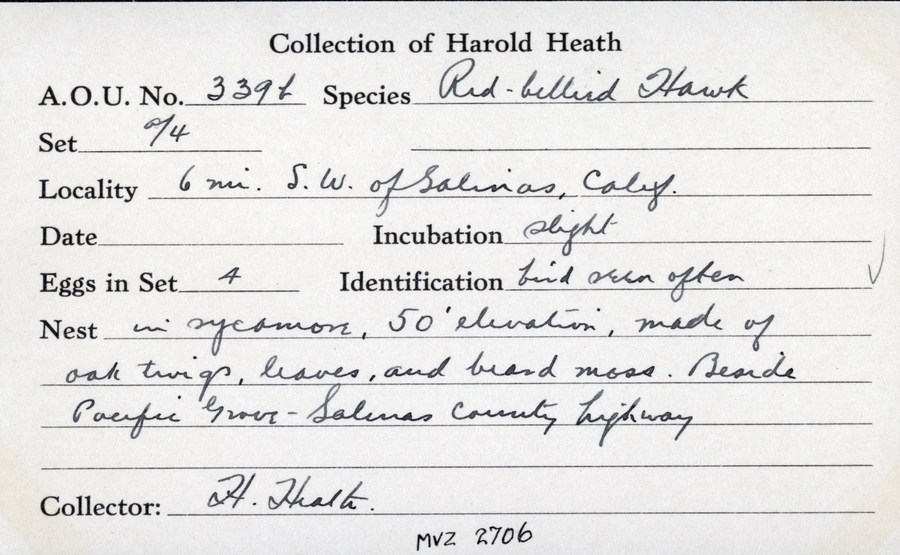 Collection of Harold Heath
A.O.U. No. 339b Species Red-bellied Hawk
Set a/4
Locality 6 mi. S.W. of Salinas, Calif.
Date Incubation slight
Eggs in Set 4 Identification bird seen often
Nest in sycamore, 50' elevation, made of
oak twigs, leaves, and beard moss. Beside
Pacific Grove - Salinas county highway
Collector: H. Heath.
MVZ 2706